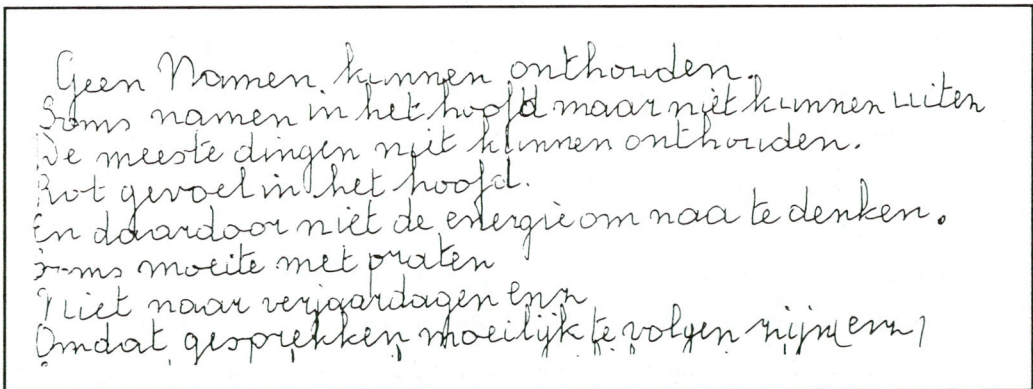 Geen Namen kunnen onthouden.
Soms namen in het hoofd maar niet kunnen uiten
De meeste dingen niet kunnen onthouden.
Rot gevoel in het hoofd.
En daardoor niet de energie om naa te denken.
Soms moeite met praten
Niet naar verjaardagen enz
Omdat gesprekken moeilijk te volgen zijn, enz,